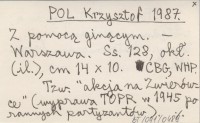 POL Krzysztof 1987.
Z pomocą ginącym. –
Warszawa. Ss. 128, okł.
(il.), cm 14 x 10. CBG, WHP.
Tzw. "akcja na Zwierów-
ce" (wyprawa TOPR w 1945 po
rannych partyzantów).